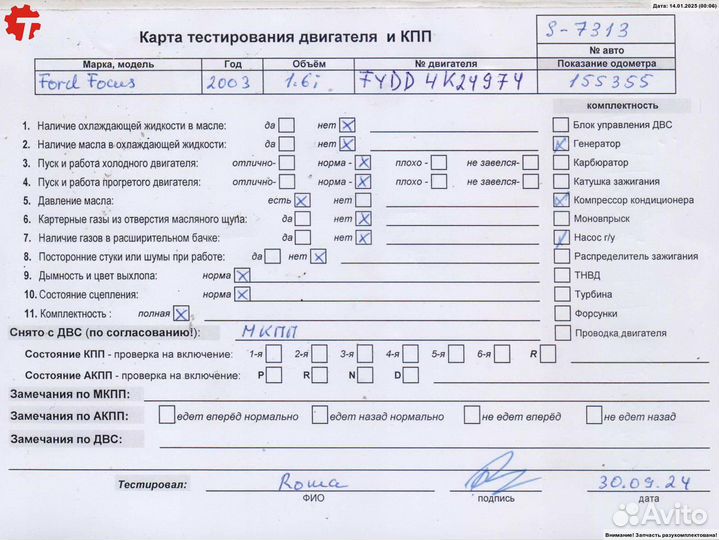 Дата: 14.01.2025 (00:06)
Карта тестирования двигателя и КПП
S-7313
№ авто
Марка, модель Год Объём № двигателя Показание одометра
Ford Focus 2003 1.6i FYDD 4K24974 155355
комплектность
1. Наличие охлаждающей жидкости в масле: да нет
Блок управления ДВС
2. Наличие масла в охлаждающей жидкости: да нет
Генератор
3. Пуск и работа холодного двигателя: отлично- норма - плохо - не завелся-
Карбюратор
4. Пуск и работа прогретого двигателя: отлично- норма - плохо - не завелся-
Катушка зажигания
5. Давление масла: есть нет
Компрессор кондиционера
6. Картерные газы из отверстия масляного щупа: да нет
Моновпрыск
7. Наличие газов в расширительном бачке: да нет
Насос г/у
8. Посторонние стуки или шумы при работе: да нет
Распределитель зажигания
9. Дымность и цвет выхлопа: норма
ТНВД
10. Состояние сцепления: норма
Турбина
11. Комплектность : полная
Форсунки
Снято с ДВС (по согласованию!): МКПП
Проводка двигателя
Состояние КПП - проверка на включение: 1-я 2-я 3-я 4-я 5-я 6-я R
Состояние АКПП - проверка на включение: P R N D
Замечания по МКПП:
Замечания по АКПП: едет вперёд нормально едет назад нормально не едет вперёд не едет назад
Замечания по ДВС:
Тестировал: Roma 30.09.24
ФИО подпись дата
Avito
Внимание! Запчасть разукомплектована!